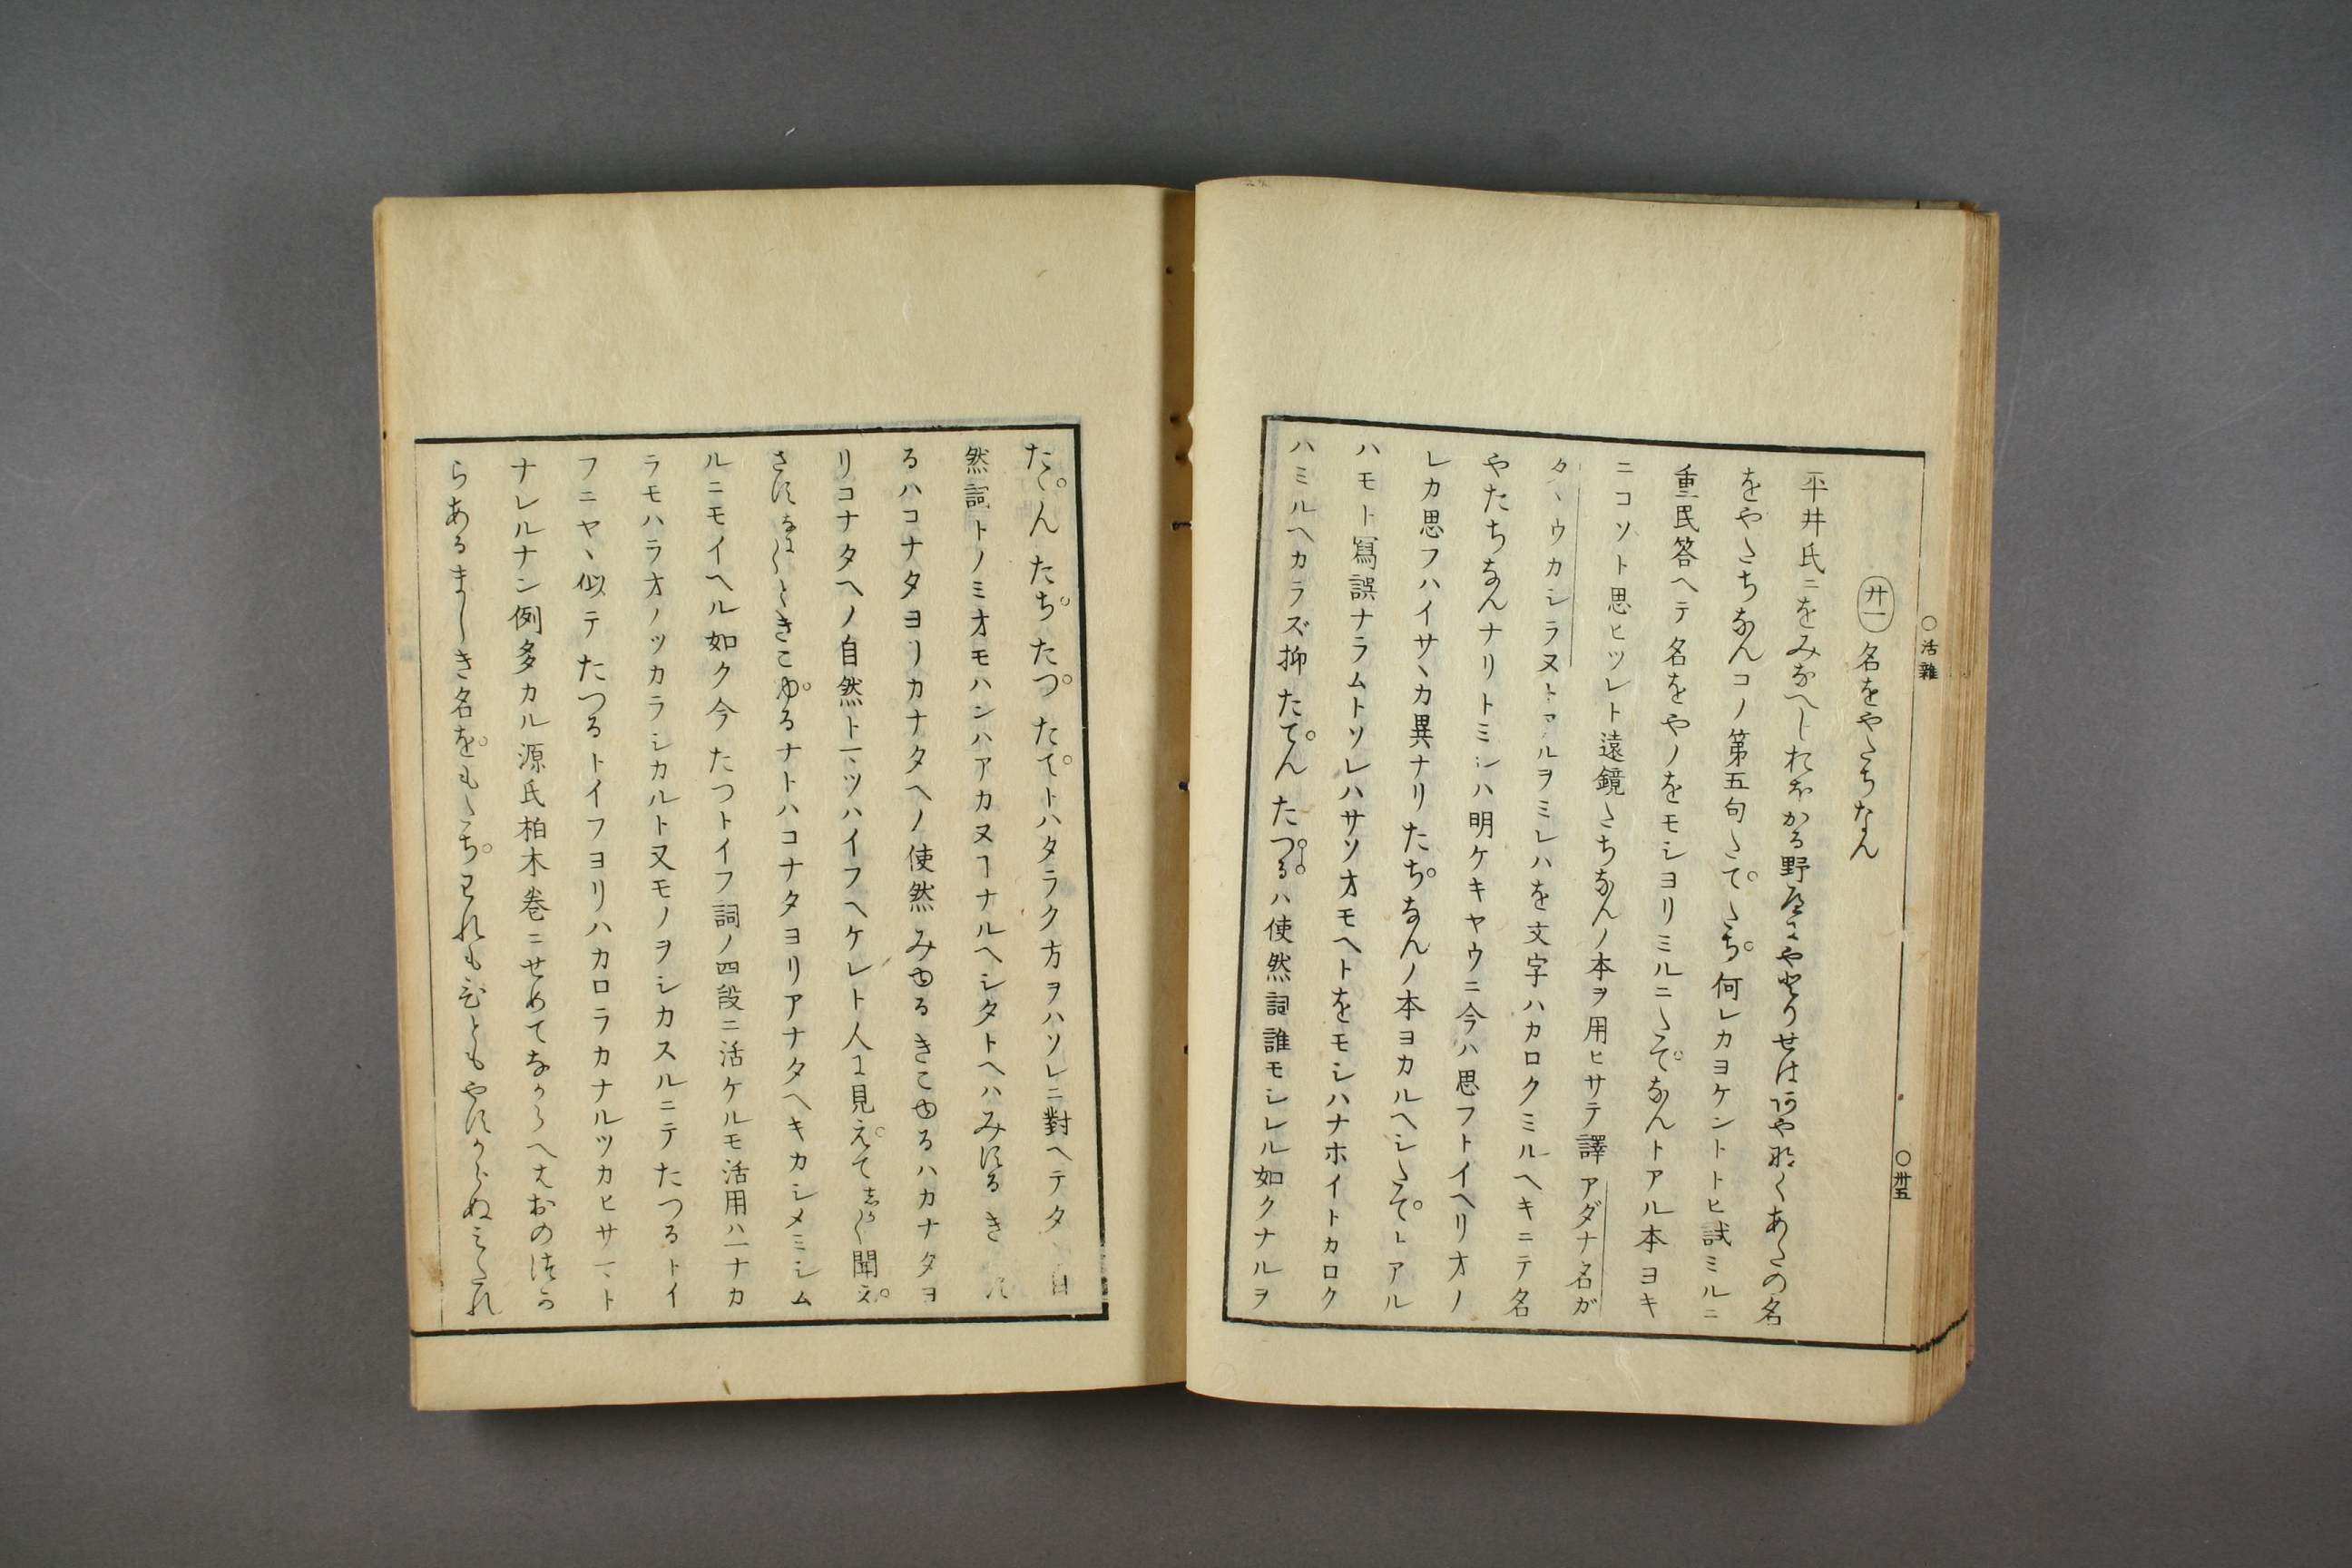 ○活雜
○卅五
廿一 名をやたちなん
平井氏ニをみなへしおほかる野邊にやとりせはあやなくあたの名
をやたちなんコノ第五句たてたち何レカヨケントトヒ試ミルニ
重民答ヘテ名をやノをモシヨリミルニたてなんトアル本ヨキ
ニコソト思ヒツレト遠鏡たちなんノ本ヲ用ヒサテ譯アダナ名ガ
タヽウカシラヌトアルヲミレハを文字ハカロクミルヘキニテ名
やたちなんナリトミシハ明ケキヤウニ今ハ思フトイヘリオノ
レカ思フハイサヽカ異ナリたちなんノ本ヨカルヘシたてトアル
ハモト冩誤ナラムトソレハサソオモヘトをモシハナホイトカロク
ハミルヘカラズ抑たてんたつるハ使然詞誰モシレル如クナルヲ
たゝんたちたつたてトハタラク方ヲハソレニ對ヘテタ 自
然詞トノミオモハンハアカヌヿナルヘシタトヘハみするき
るハコナタヨリカナタヘノ使然みゆるきこゆるハカナタヨ
リコナタヘノ自然ト一ツハイフヘケレト人に見えて聞え
さすなにときこゆるナトハコナタヨリアナタヘキカシメミシム
ルニモイヘル如ク今たつトイフ詞ノ四段ニ活ケルモ活用ハ一ナカ
ラモハラオノツカラシカルト又モノヲシカスルニテたつるトイ
フニヤヽ似テたつるトイフヨリハカロラカナルツカヒサマト
ナレルナン例多カル源氏柏木巻ニせめてなからへはおのつか
らあるましき名をもたちわれも人もやすからぬみたれ